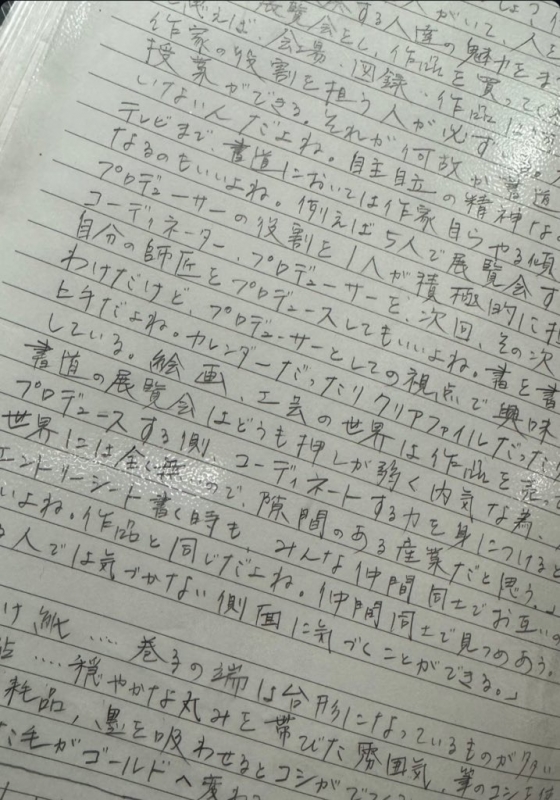 展覧会をする人達がいて、人と
例えば、会場、図録、作品に
作家の役割を担う人が必ず
授業ができる。それが何故か書道
いけない人だよね。自主自立の精神な
テレビまで。書道においては作家自らやる傾
なるのもいいよね。例えば5人で展覧会す
プロデューサーの役割を1人が積極的に担
コーディネーター、プロデューサーを、次回、その次
自分の師匠をプロデュースしてもいいよね。書を書
わけだけど、プロデューサーとしての視点で興味
ヒキだよね。カレンダーだったりクリアファイルだった
している。絵画、工芸の世界は作品を売
書道の展覧会はどうも押しが弱く内気な為、
プロデュースする側、コーディネートする力を身につけると
世界には全く無いので、隙間のある産業だと思う。
エントリーシート書く時も、みんな仲間同士でお互いの
いよね。作品と同じだよね。仲間同士で見つめあう。
人では気づかない側面に気づくことができる。」
け紙……巻子の端は台形になっているものが多い
……穏やかな丸みを帯びた雰囲気、筆のコシを
耗品、墨を吸わせるとコシがでて
た毛がゴールドへ変わ